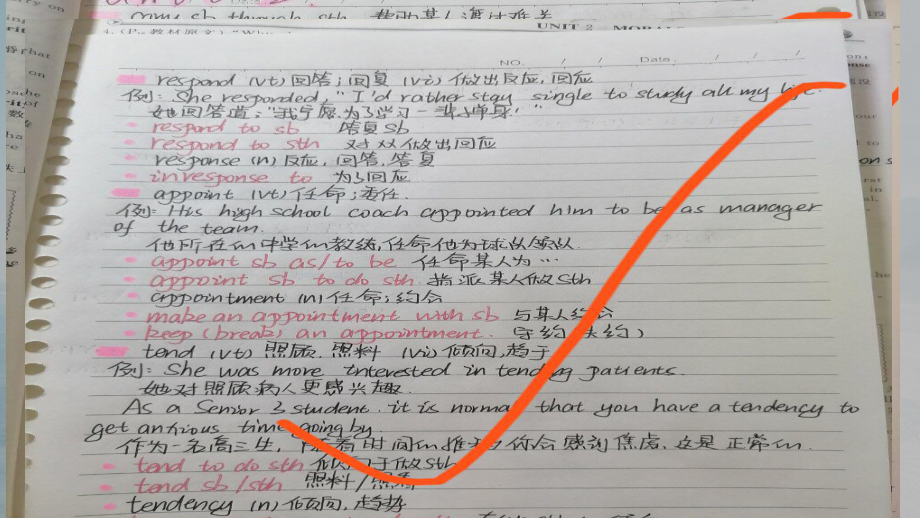 UNIT 2
NO. / / Date. / /
respond (vt) 回答;回复 (vi) 做出反应,回应
例: She responded, "I'd rather stay single to study all my life."
她回答道:"我宁愿为了学习一辈子单身!"
respond to sb 答复sb
respond to sth 对xx做出回应
response (n) 反应,回答,答复
in response to 为了回应
appoint (vt) 任命;委任.
例: His high school coach appointed him to be as manager
of the team.
他所在的中学的教练,任命他为球队领队.
appoint sb as/to be 任命某人为…
appoint sb to do sth 指派某人做sth
appointment (n) 任命;约会
make an appointment with sb 与某人约会
keep (break) an appointment. 守约(失约)
tend (vt) 照顾,照料 (vi) 倾向,趋于
例: She was more interested in tending patients.
她对照顾病人更感兴趣.
As a Senior 3 student. it is normal that you have a tendency to
get anxious time going by.
作为一名高三生, 随着时间的推移你会感到焦虑,这是正常的.
tend to do sth 倾向于做sth
tend sb/sth 照料/照看
tendency (n) 倾向,趋势